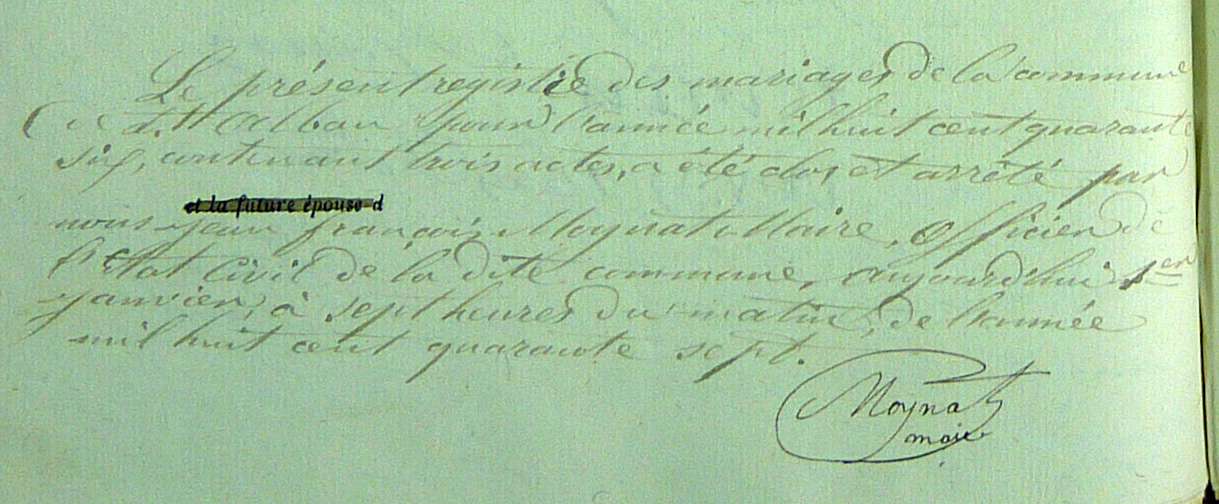 Le présent registre des mariages de la commune
de St Alban pour l'année mil huit cent quarante
six, contenant trois actes, a été clos et arrêté par
et la future épouse d
nous Jean françois Moynat Maire, officier de
l'Etat Civil de la dite commune, aujourd'hui 1er
janvier, à sept heures du matin, de l'année
mil huit cent quarante sept.
Moynat
maire